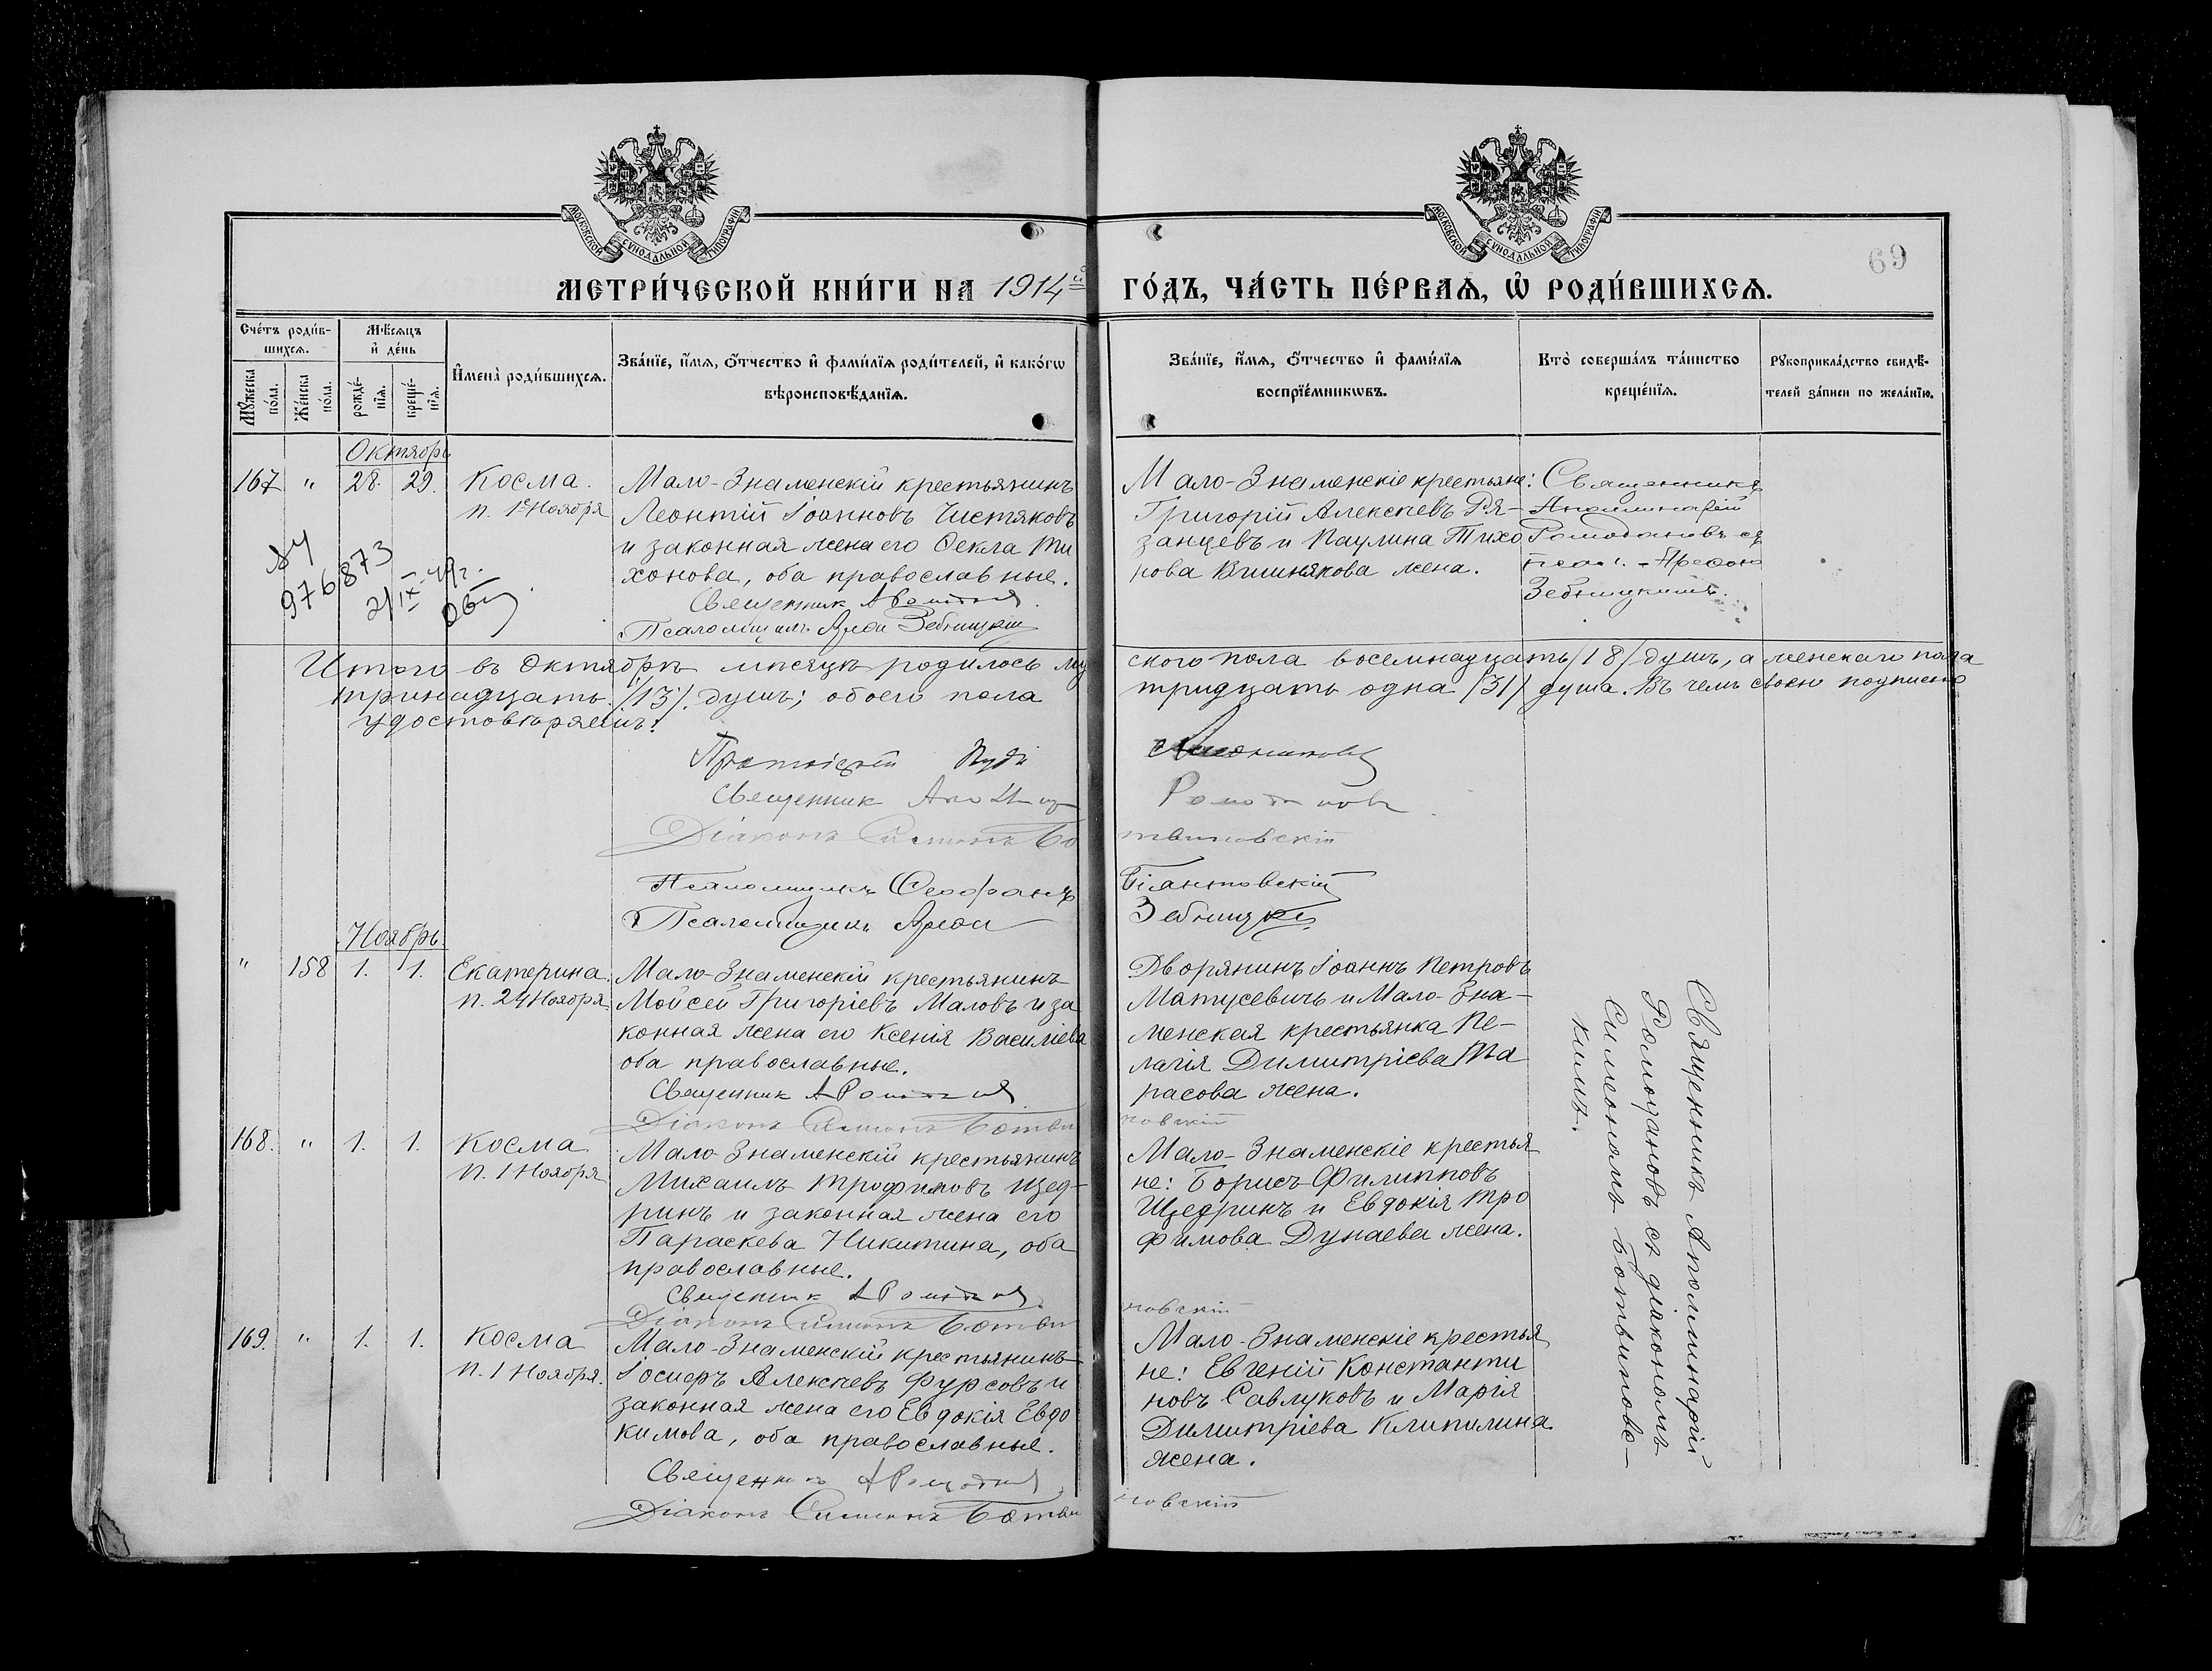 МОСКОВСКОЙ СѴНОДАЛЬНОЙ ТИПОГРАФІИ
МОСКОВСКОЙ СѴНОДАЛЬНОЙ ТИПОГРАФІИ
69
МЕТРИ́ЧЕСКОЙ КНИ́ГИ НА 1914й ГО́ДЪ, ЧА́СТЬ ПЕ́РВАѦ, Ѡ҆ РОДИ́ВШИХСѦ.
Сче́тъ роди́вшихсѧ.
Мꙋ́жеска по́ла.
Же́нска по́ла.
Мѣ́сѧцъ и҆ де́нь
рожде́нїѧ.
креще́нїѧ.
И҆мена̀ роди́вшихсѧ.
Зва́нїе, и҆́мѧ, ѻ҆́тчество и҆ фами́лїѧ роди́телей, и҆ како́гѡ
вѣроисповѣ́данїѧ.
Зва́нїе, и҆́мѧ, ѻ҆́тчество и҆ фами́лїѧ
воспрїе́мникѡвъ.
Кто̀ соверша́лъ та́инство
креще́нїѧ.
Рꙋкоприкла́дство свидѣ́-
телей за́писи по жела́нїю.
Октябрь
167 " 28. 29. Косма.
п. 1е Ноября
Мало-Знаменскій крестьянинъ
Леонтій Іоанновъ Чистяковъ
и законная жена его Ѳекла Ти
хонова, оба православные.
Священник
Псаломщикъ Зебницкій
Мало-Знаменскіе крестьяне:
Григорій Алексѣевъ Ря-
занцевъ и Паулина Тихо
нова Вишнякова жена.
Священникъ
Аполлинарій
Ромодановъ съ
Зебницкимъ.
976873
2/IX-49г.
Итого въ Октябрѣ мѣсяцѣ родилось муж
ского пола восемнадцать /18/ душъ, а женскаго пола
тринадцать /13/ душъ; обоего пола
тридцать одна /31/ душа. Въ чемъ своею подписью
удостовѣряемъ:
Протоіерей
Священник Ромоданов
Діаконъ Симеонъ Ботвиновскій
Псаломщикъ Ѳеофанъ
Псаломщикъ Зебницкі
Ноябрь
" 158 1. 1. Екатерина.
п. 24 Ноября.
Мало-Знаменскій крестьянинъ
Мойсей Григоріевъ Маловъ и за
конная жена его Ксенія Василіева
оба православные.
Священник
Діаконъ Симеонъ Ботвиновскій
Дворянинъ Іоаннъ Петровъ
Матусевичъ и Мало-Зна-
менская крестьянка Пе-
лагія Димитріева Та
расова жена.
168. " 1. 1. Косма
п. 1 Ноября
Мало-Знаменскій крестьянинъ
Михаилъ Трофимовъ Щед-
ринъ и законная жена его
Параскева Никитина, оба
православные.
Священник
Діаконъ Симеонъ Ботвиновскій
Мало-Знаменскіе крестья
не: Борисъ Филипповъ
Щедринъ и Евдокія Тро
фимова Дунаева жена.
169. " 1. 1. Косма
п. 1 Ноября.
Мало-Знаменскій крестьянинъ
Іосифъ Алексѣевъ Фурсовъ и
законная жена его Евдокія Евдо
кимова, оба православные.
Священник
Діаконъ Симеонъ Ботвиновскій
Мало-Знаменскіе крестья
не: Евгеній Константи
новъ Савлуковъ и Марія
Димитріева Клипилина
жена.
Священникъ Аполлинарій
Ромодановъ съ діакономъ
Симеономъ Ботвиновс-
кимъ.